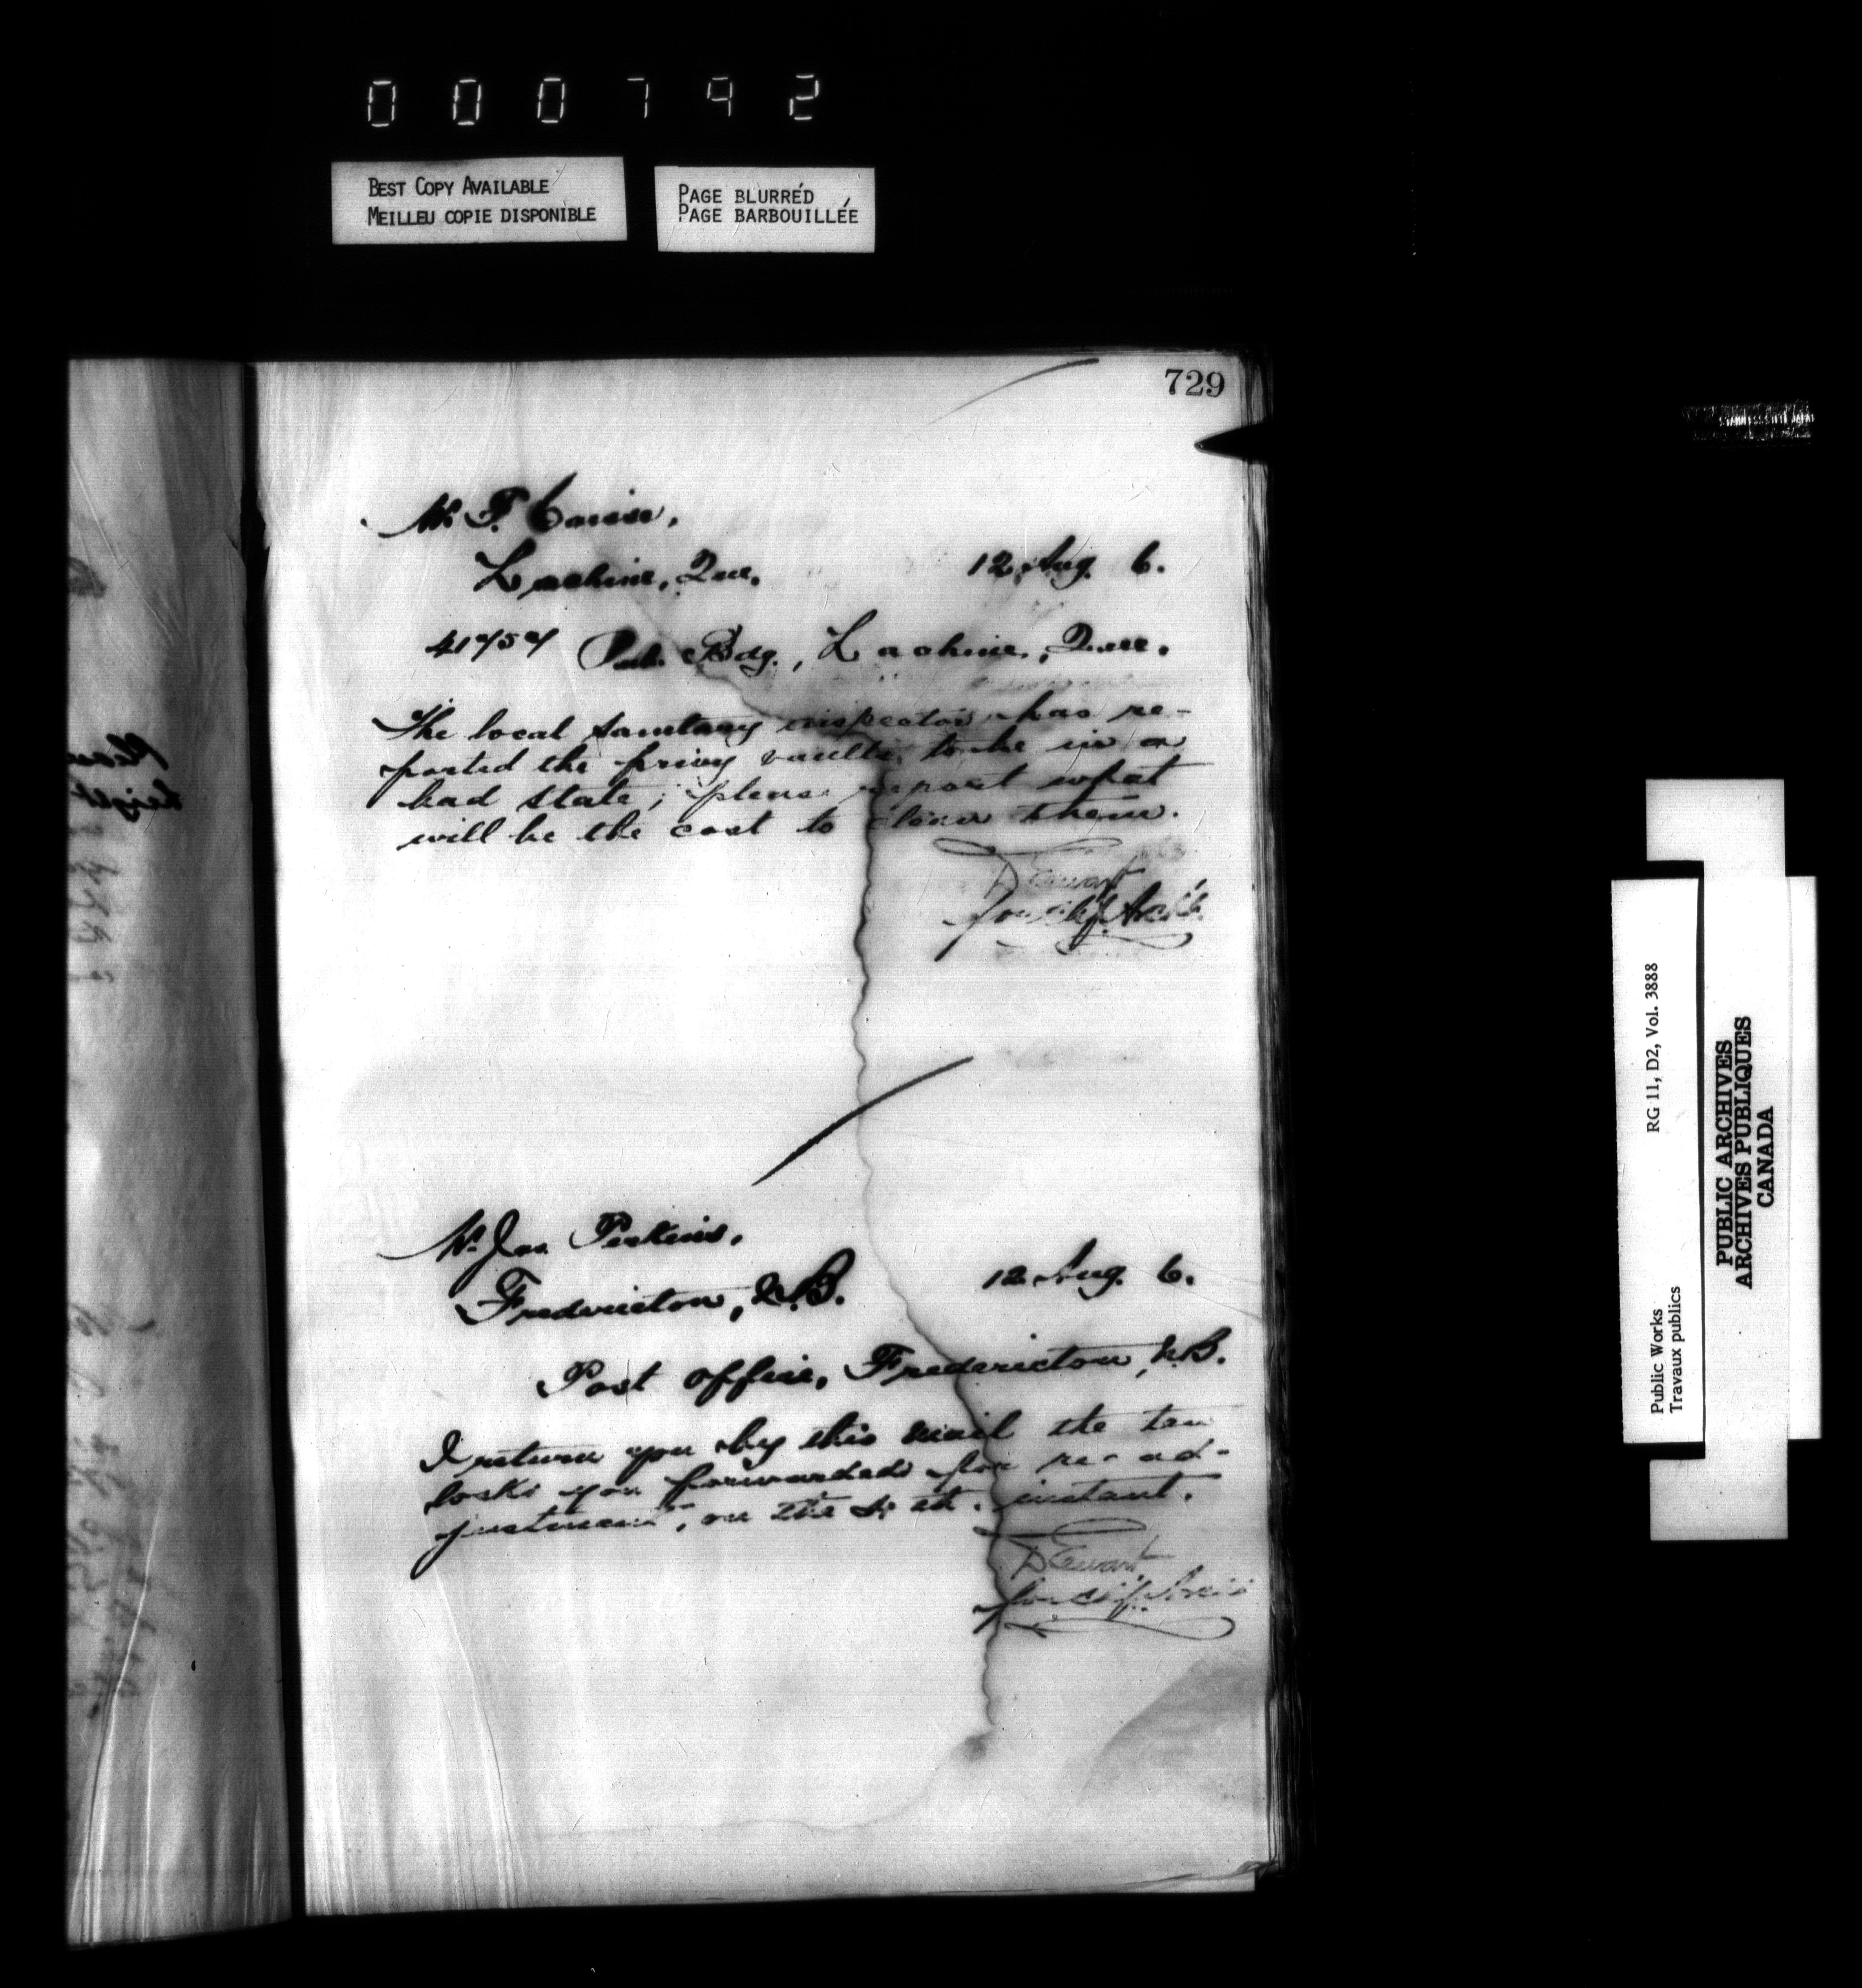 000792
BEST COPY AVAILABLE
MEILLEU COPIE DISPONIBLE
PAGE BLURRÉD
PAGE BARBOUILLÉE
729
Mr. F.
Lachine, Que. 12 Aug. 6.
Pub. Bdg., Lachine, Que.
The local sanitary inspector has re-
ported the privy vaults to be in a
bad state; please report what
will be the cost to clean them.
D Ewart
Chf. Archt.
Mr. Jas. Perkins,
Fredericton, N.B. 12 Aug. 6.
Post Office, Fredericton, N.B.
I return you by this mail the ten
locks you forwarded for re-ad-
justment, on the instant.
D Ewart
Chf. Archt.
Public Works RG 11, D2, Vol. 3888
Travaux publics
PUBLIC ARCHIVES
ARCHIVES PUBLIQUES
CANADA